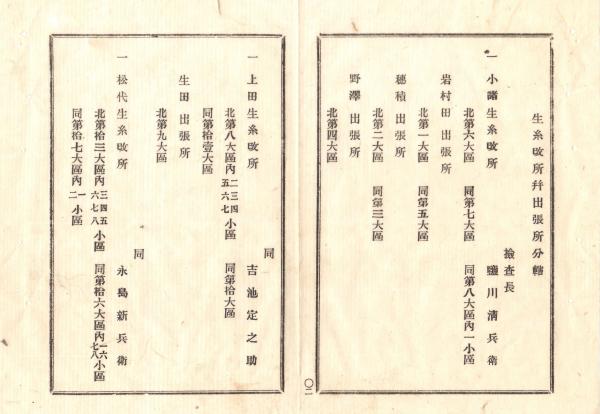 生糸改所幷出張所分轄
檢査長
一 小諸生糸改所 鹽川淸兵衛
北第六大區 同第七大區 同第八大區內一小區
岩村田出張所
北第一大區 同第五大區
穗積出張所
北第二大區 同第三大區
野澤出張所
北第四大區
〇二
同
一 上田生糸改所 吉池定之助
北第八大區內二三四五六七小區 同第拾大區
同第拾壹大區
生田出張所
北第九大區
同
一 松代生糸改所 永島新兵衛
北第拾三大區內三四五六七八小區 同第拾六大區內一六七八小區
同第拾七大區內一二小區